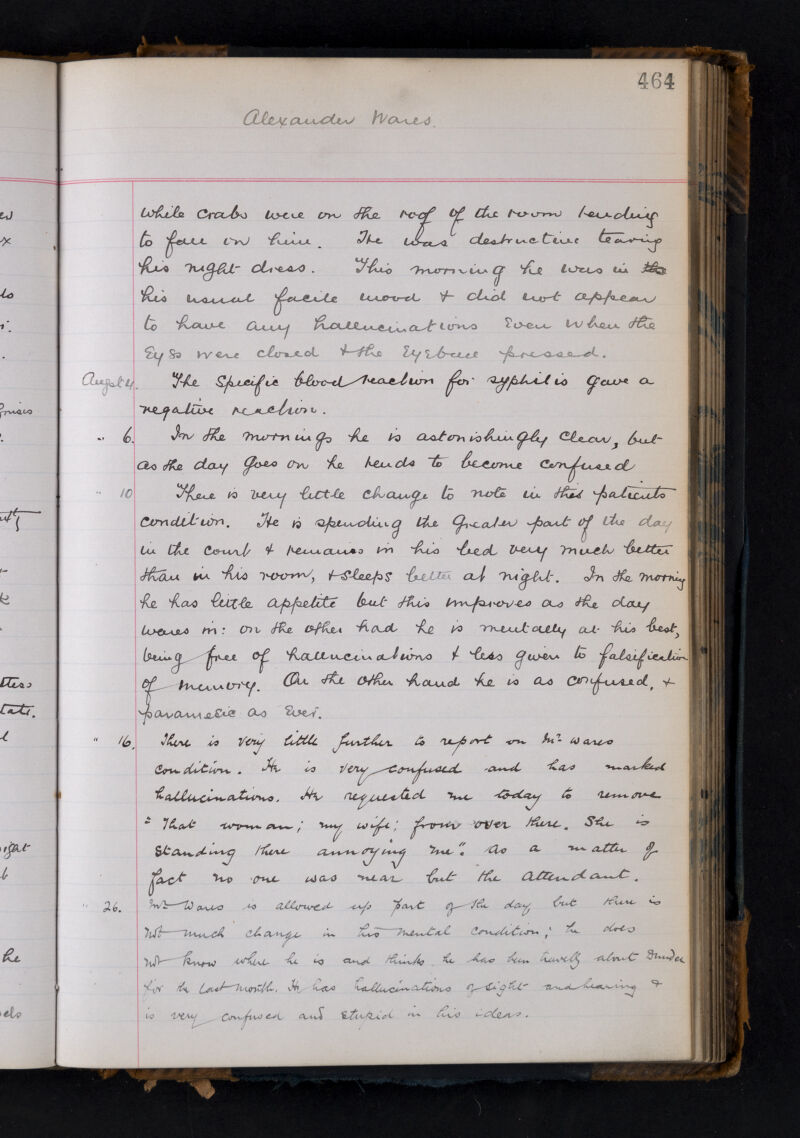 464
Alexander Wares.
while crabs were on the roof of the room tending
to fall on him. He was destructive tearing
his night dress. This morning he was in the
his usual facile mood & did not appear
to have any hallucinations even when the
Eyes were closed & the Eyeball pressed.
Augst 4. The Specific blood reaction for syphilis gave a
negative reaction.
" 6. In the mornings he is astonishingly clear, but
as the day goes on he tends to become confused
" 10 There is very little change to note in this patients
condition. He is spending the Greater part of the day
in the court & remains in his bed very much better
than in his room, & sleeps better at night. In the morning
he has little appetite but this improves as the day
weares in: on the other had he is mentally at his best,
being free of hallucinations & less given to falsification
of memory. On the other hand he is as confused, &
paramesic as ever.
" 16. There is very little further to report on Mr Wares
condition. He is very confused and has marked
hallucinations. He requested me today to remove
"That woman; my wife; from over there. She is
standing there annoying me". As a matter of
fact no one was near but the attendant.
" 26. Mr Wares is allowed up part of the day but there is
not much change in his mental condition; he does
not know where he is and thinks he has been travellg about Dundee
for the last month. He has hallucinations of sight and hearing &
is very confused and stupid in his ideas.